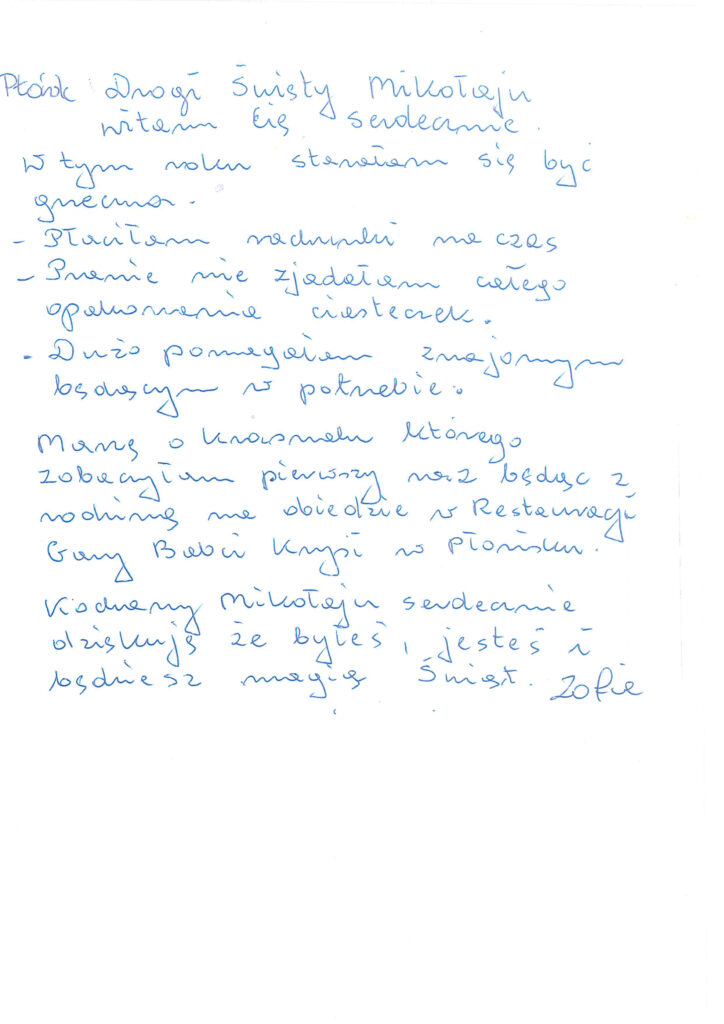 Płońsk Drogi Święty Mikołaju
witam Cię serdecznie.
W tym roku starałam się być
grzeczna.
- Płaciłam rachunki na czas
- Prawie nie zjadałam całego
opakowania ciasteczek.
- Dużo pomagałam znajomym
będącym w potrzebie.
Marzę o krasnalu którego
zobaczyłam pierwszy raz będąc z
rodziną na obiedzie w Restauracji
Gary Babci Krysi w Płońsku.
Kochany Mikołaju serdecznie
dziękuję że byłeś, jesteś i
będziesz magią Świąt. Zofia